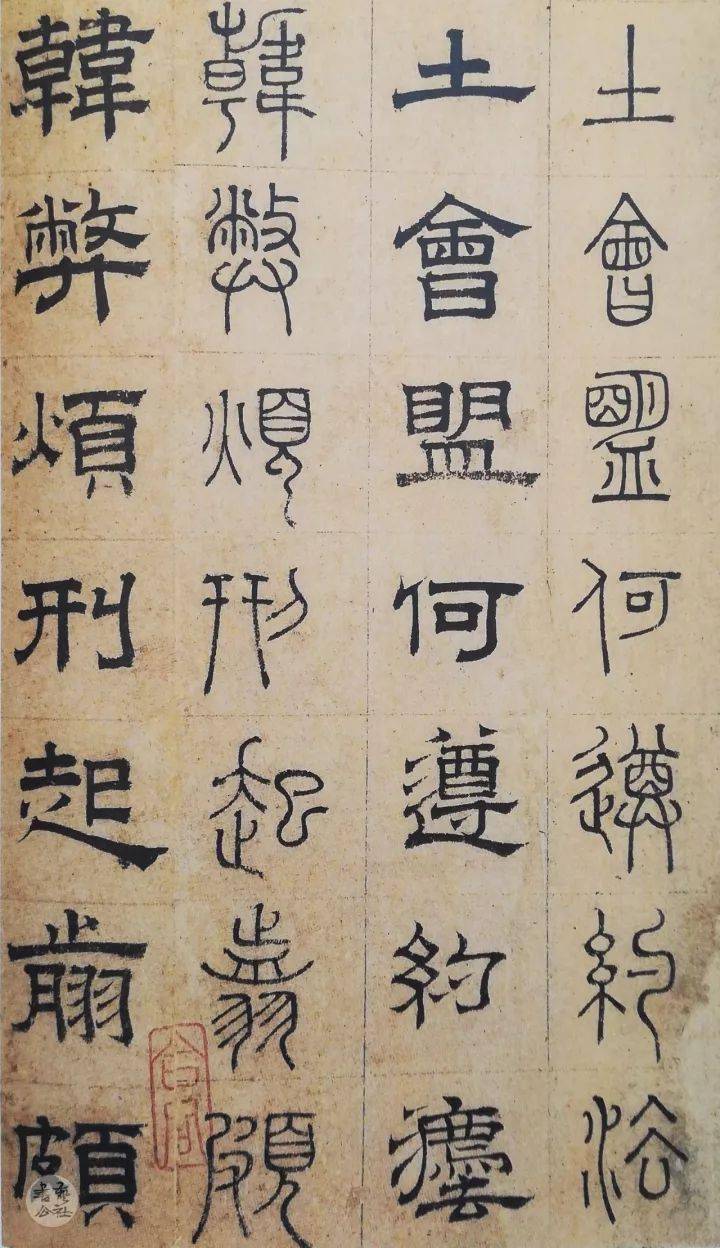 土會盟何遵約法
土會盟何遵約灋
韓弊煩刑起翦頗
韓弊煩刑起翦頗
書藝
公社